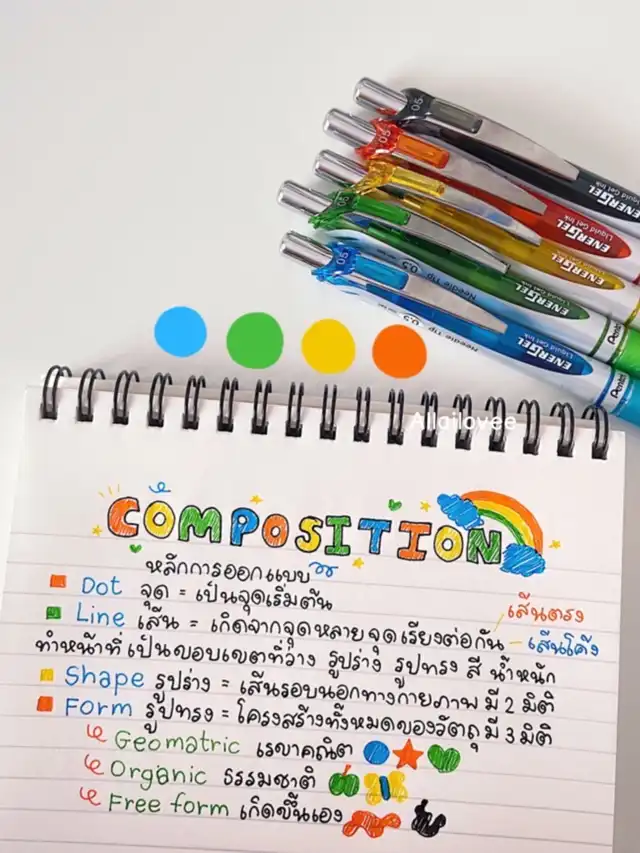 0.5
0.5
0.5
0.5
ENERGEL
Liquid Gel Ink
ENERGEL
Liquid Gel Ink
ENERGEL
ENERGEL
ENERGEL
0.5 Needle Tip
Needle Tip 0.5
Pentel
Pentel
Allailovee
COMPOSITION
หลักการออกแบบ
Dot จุด = เป็นจุดเริ่มต้น
เส้นตรง
Line เส้น = เกิดจากจุดหลายจุดเรียงต่อกัน - เส้นโค้ง
ทำหน้าที่เป็นขอบเขตที่ว่าง รูปร่าง รูปทรง สี น้ำหนัก
Shape รูปร่าง = เส้นรอบนอกทางกายภาพ มี 2 มิติ
Form รูปทรง = โครงสร้างทั้งหมดของวัตถุ มี 3 มิติ
Geomatric เรขาคณิต
Organic ธรรมชาติ
Free form เกิดขึ้นเอง